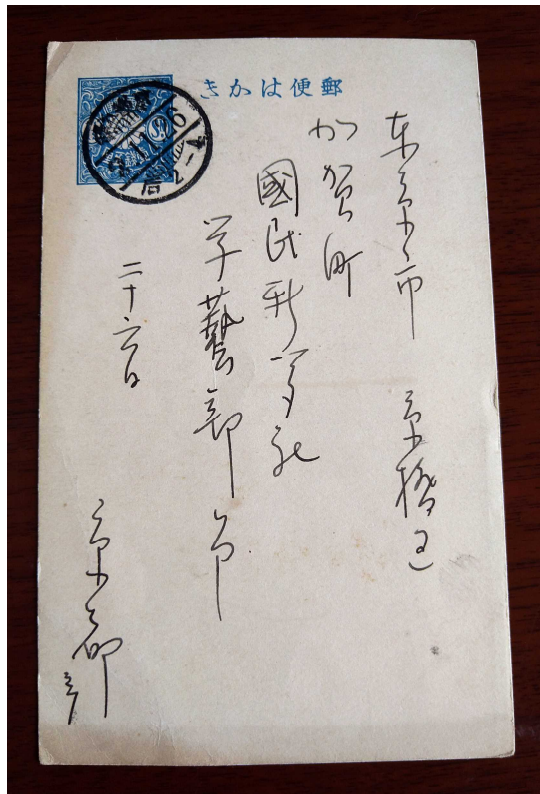 郵便はかき
東京市 京橋区
加賀町
國民新聞社
学藝部 御中
二十六日
京都